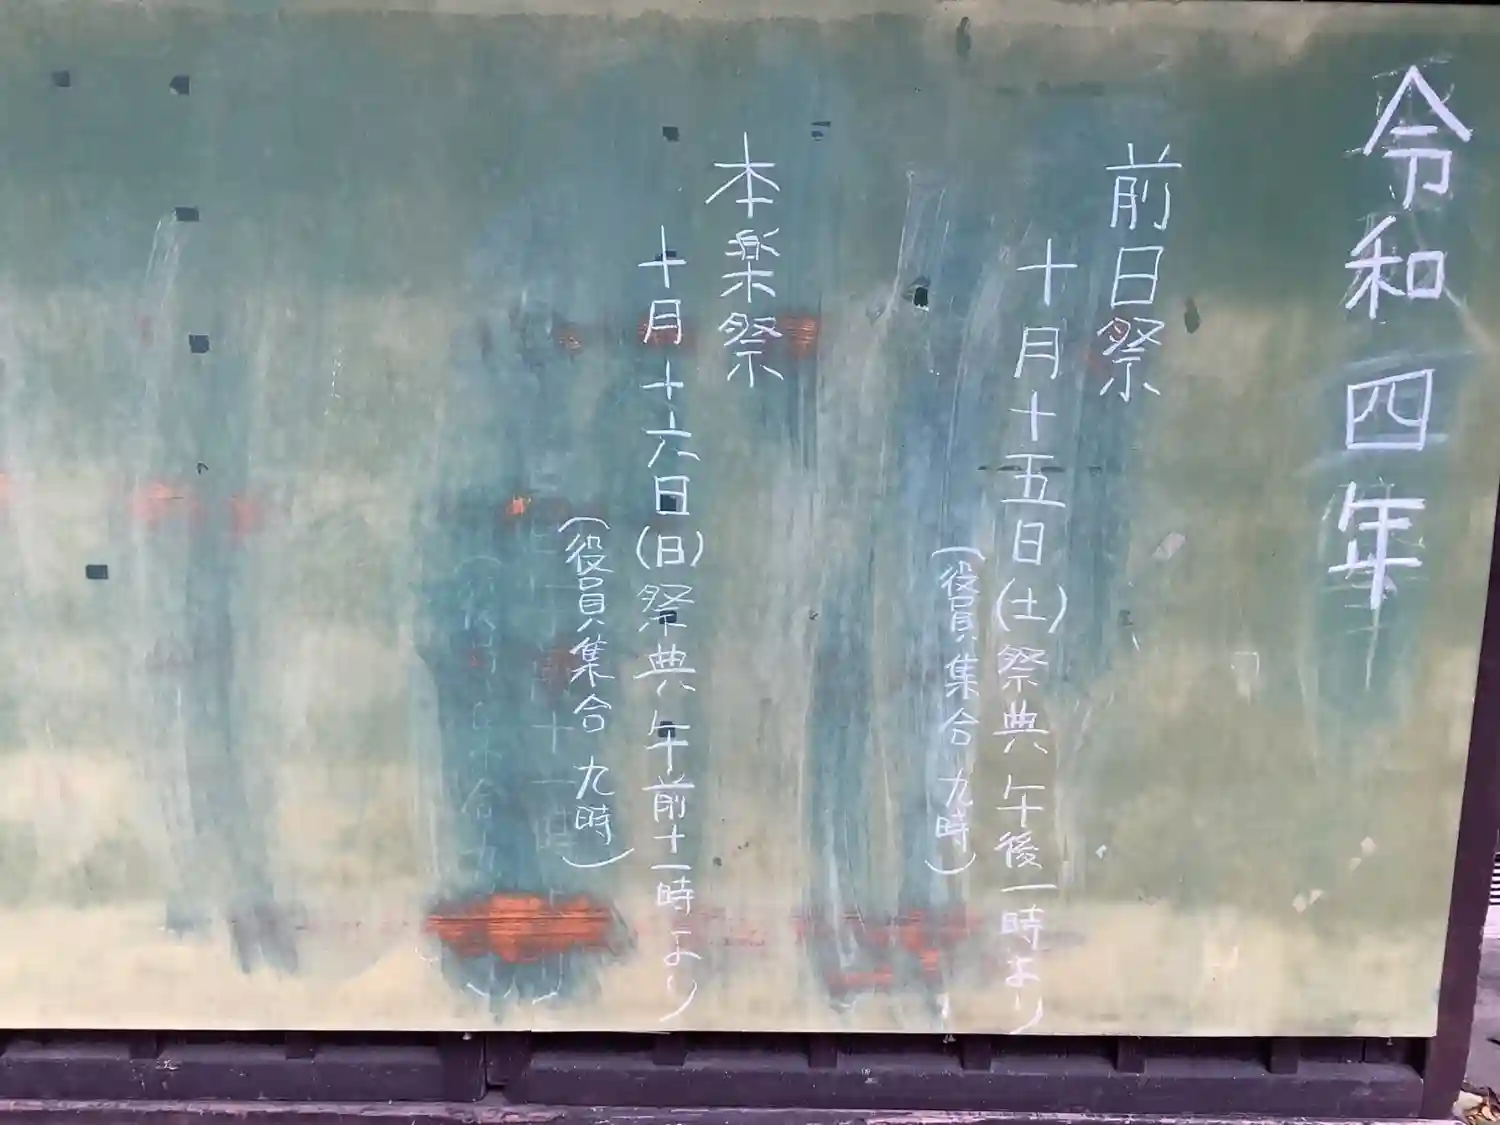 令和四年
前日祭
十月十五日(土)祭典 午後一時より
(役員集合 九時)
本楽祭
十月十六日(日)祭典 午前十一時より
(役員集合 九時)